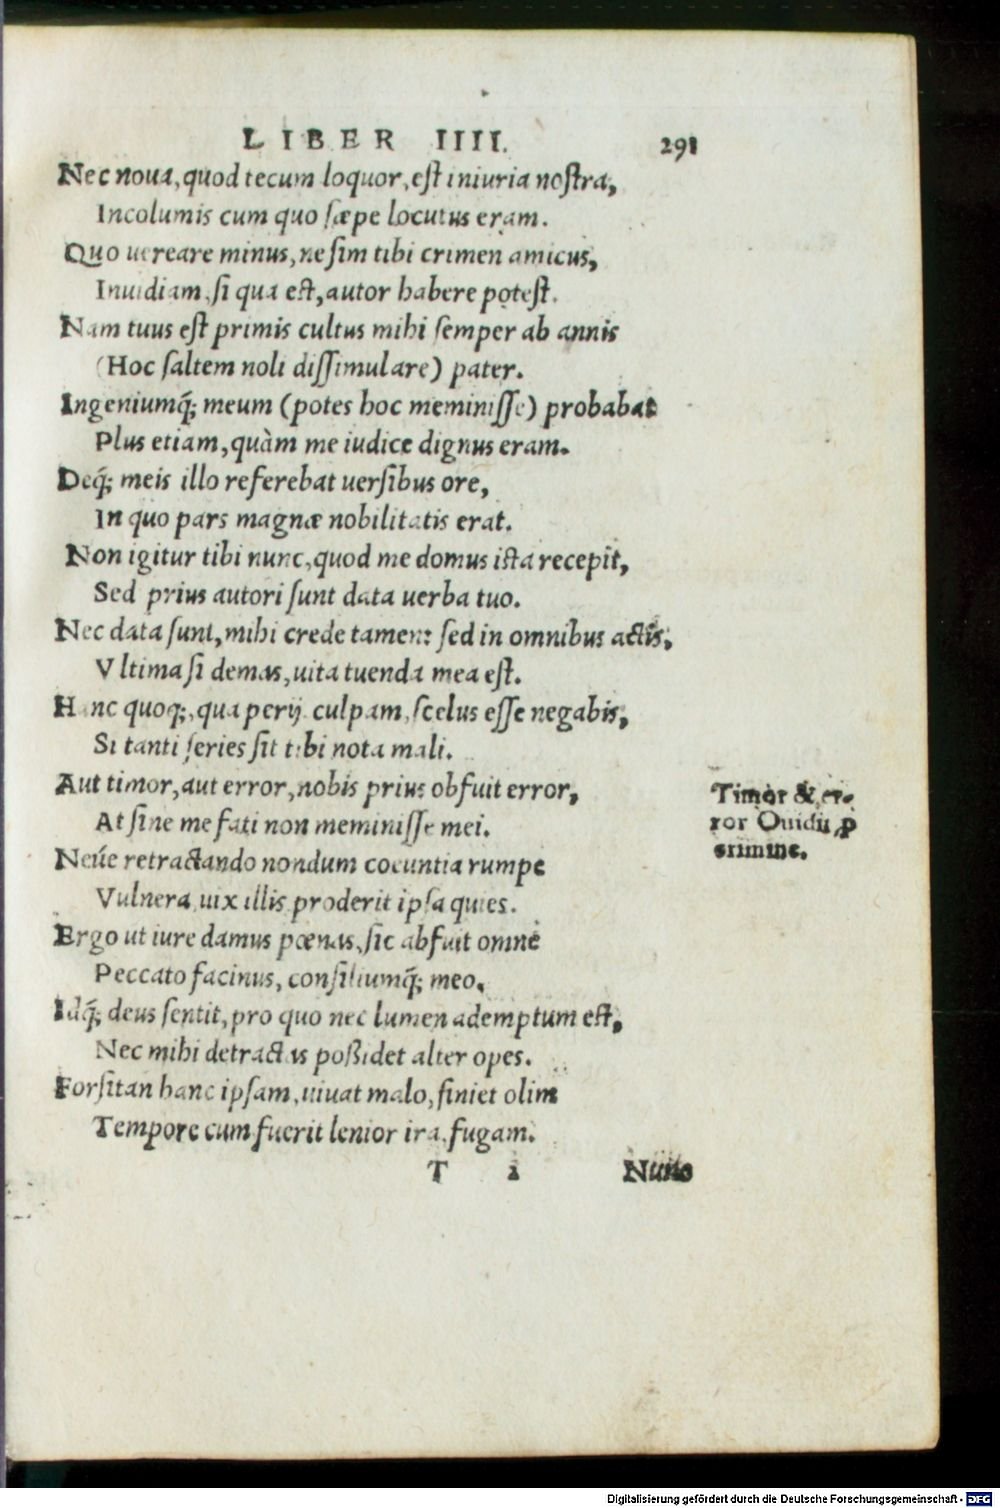 LIBER IIII. 291
Nec noua, quod tecum loquor, est iniuria nostra,
Incolumis cum quo sæpe locutus eram.
Quo uereare minus, ne sim tibi crimen amicus,
Inuidiam, si qua est, autor habere potest.
Nam tuus est primis cultus mihi semper ab annis
(Hoc saltem noli dissimulare) pater.
Ingeniumq́; meum (potes hoc meminisse) probabat
Plus etiam, quàm me iudice dignus eram.
Deq́; meis illo referebat uersibus ore,
In quo pars magnæ nobilitatis erat.
Non igitur tibi nunc, quod me domus ista recepit,
Sed prius autori sunt data uerba tuo.
Nec data sunt, mihi crede tamen: sed in omnibus actis,
Vltima si demas, uita tuenda mea est.
Hanc quoq;, qua perij culpam, scelus esse negabis,
Si tanti series sit tibi nota mali.
Aut timor, aut error, nobis prius obfuit error,
At sine me fati non meminisse mei.
Neúe retractando nondum coeuntia rumpe
Vulnera, uix illis proderit ipsa quies.
Ergo ut iure damus pœnas, sic abfuit omne
Peccato facinus, consiliumq́; meo.
Idq́; deus sentit, pro quo nec lumen ademptum est,
Nec mihi detractas poßidet alter opes.
Forsitan hanc ipsam, uiuat malo, finiet olim
Tempore cum fuerit lenior ira, fugam.
T i Nunc
Timor & er-
ror Ouidii ꝓ
crimine.
Digitalisierung gefördert durch die Deutsche Forschungsgemeinschaft - DFG